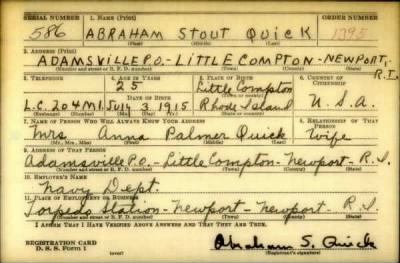 SERIAL NUMBER 1. NAME (Print) ORDER NUMBER
586 ABRAHAM STOUT QUICK 1395
(First) (Middle) (Last)
2. ADDRESS (Print)
ADAMSVILLE P.O. - LITTLE COMPTON - NEWPORT, R.I.
(Number and street or R. F. D. number) (Town) (County) (State)
3. TELEPHONE 4. AGE IN YEARS 5. PLACE OF BIRTH 6. COUNTRY OF CITIZENSHIP
25 Little Compton
DATE OF BIRTH (Town or county)
L.C. 204 M1 July 3 1915 Rhode Island U.S.A.
(Mo.) (Day) (Yr.) (State or country)
7. NAME OF PERSON WHO WILL ALWAYS KNOW YOUR ADDRESS 8. RELATIONSHIP OF THAT PERSON
Mrs Anna Palmer Quick Wife
(Mr., Mrs., Miss) (First) (Middle) (Last)
9. ADDRESS OF THAT PERSON
Adamsville P.O. - Little Compton - Newport - R.I.
(Number and street or R. F. D. number) (Town) (County) (State)
10. EMPLOYER'S NAME
Navy Dept.
11. PLACE OF EMPLOYMENT OR BUSINESS
Torpedo Station - Newport - Newport - R.I.
(Number and street or R. F. D. number) (Town) (County) (State)
I AFFIRM THAT I HAVE VERIFIED ABOVE ANSWERS AND THAT THEY ARE TRUE.
REGISTRATION CARD
D. S. S. Form 1 (over) Abraham S. Quick
(Registrant's signature)